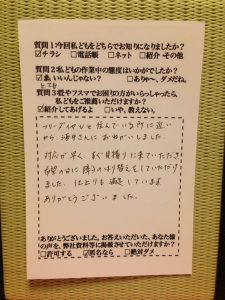 質問1今回私どもをどちらでお知りになりましたか?
☑チラシ □電話帳 □ネット □紹介 その他
質問2私どもの作業中の態度はいかがでしたか?
とても
☑まぁ、いいんじゃない? □ありゃ~、ダメだね。
質問3畳やフスマでお困りの方がいらっしゃったら、
私どもをご推薦いただけますか?
☑紹介してあげるよ □いや、教えない。
フリーダイヤルと住んでいる所に近い
から、酒井さんにお願いしました。
対応が早く、すぐ見積りに来ていただき
希望の日に障子のはり替えをしていただけ
ました。仕上りも満足しています
ありがとうございました。
ありがとうございました。お答えいただいた、あなた様
の声を、弊社資料等に掲載させていただけますか?
□許可する ☑匿名なら □絶対ダメ